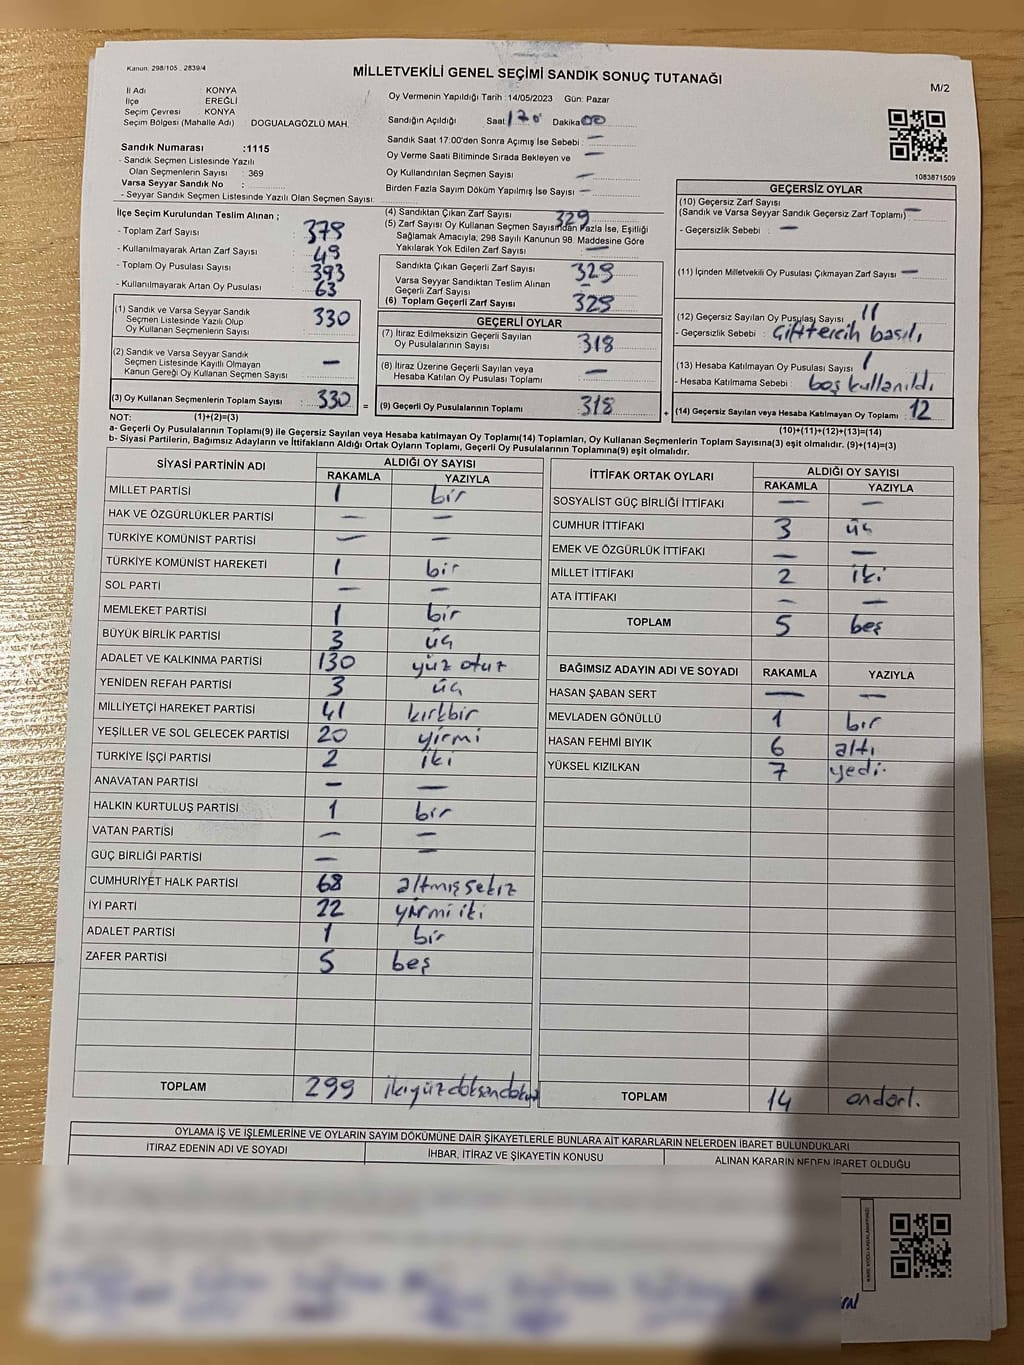 Kanun: 298/105 , 2839/4
MİLLETVEKİLİ GENEL SEÇİMİ SANDIK SONUÇ TUTANAĞI
M/2
İl Adı : KONYA
İlçe : EREĞLİ
Seçim Çevresi : KONYA
Seçim Bölgesi (Mahalle Adı) : DOGUALAGÖZLÜ MAH.
Oy Vermenin Yapıldığı Tarih : 14/05/2023 Gün: Pazar
Sandığın Açıldığı Saat Dakika 00
Sandık Saat 17:00'den Sonra Açımış İse Sebebi : —
Oy Verme Saati Bitiminde Sırada Bekleyen ve
Oy Kullandırılan Seçmen Sayısı —
Birden Fazla Sayım Döküm Yapılmış İse Sayısı —
1083871509
Sandık Numarası :1115
- Sandık Seçmen Listesinde Yazılı
Olan Seçmenlerin Sayısı : 369
Varsa Seyyar Sandık No :
- Seyyar Sandık Seçmen Listesinde Yazılı Olan Seçmen Sayısı:
İlçe Seçim Kurulundan Teslim Alınan ;
- Toplam Zarf Sayısı : 378
- Kullanılmayarak Artan Zarf Sayısı : 49
- Toplam Oy Pusulası Sayısı : 393
- Kullanılmayarak Artan Oy Pusulası : 63
(1) Sandık ve Varsa Seyyar Sandık
Seçmen Listesinde Yazılı Olup
Oy Kullanan Seçmenlerin Sayısı : 330
(2) Sandık ve Varsa Seyyar Sandık
Seçmen Listesinde Kayıtlı Olmayan
Kanun Gereği Oy Kullanan Seçmen Sayısı : —
(3) Oy Kullanan Seçmenlerin Toplam Sayısı : 330
(4) Sandıktan Çıkan Zarf Sayısı 329
(5) Zarf Sayısı Oy Kullanan Seçmen Sayısından Fazla İse, Eşitliği
Sağlamak Amacıyla, 298 Sayılı Kanunun 98. Maddesine Göre
Yakılarak Yok Edilen Zarf Sayısı : —
Sandıkta Çıkan Geçerli Zarf Sayısı 329
Varsa Seyyar Sandıktan Teslim Alınan
Geçerli Zarf Sayısı —
(6) Toplam Geçerli Zarf Sayısı 329
GEÇERLİ OYLAR
(7) İtiraz Edilmeksizin Geçerli Sayılan
Oy Pusulalarının Sayısı : 318
(8) İtiraz Üzerine Geçerli Sayılan veya
Hesaba Katılan Oy Pusulası Toplamı : —
= (9) Geçerli Oy Pusulalarının Toplamı : 318 +
GEÇERSİZ OYLAR
(10) Geçersiz Zarf Sayısı
(Sandık ve Varsa Seyyar Sandık Geçersiz Zarf Toplamı) —
- Geçersizlik Sebebi : —
(11) İçinden Milletvekili Oy Pusulası Çıkmayan Zarf Sayısı —
(12) Geçersiz Sayılan Oy Pusulası Sayısı 11
- Geçersizlik Sebebi : Çifttercih basılı
(13) Hesaba Katılmayan Oy Pusulası Sayısı : 1
- Hesaba Katılmama Sebebi : boş kullanıldı
(14) Geçersiz Sayılan veya Hesaba Katılmayan Oy Toplamı : 12
NOT: (1)+(2)=(3)
(10)+(11)+(12)+(13)=(14)
a- Geçerli Oy Pusulalarının Toplamı(9) ile Geçersiz Sayılan veya Hesaba katılmayan Oy Toplamı(14) Toplamları, Oy Kullanan Seçmenlerin Toplam Sayısına(3) eşit olmalıdır. (9)+(14)=(3)
b- Siyasi Partilerin, Bağımsız Adayların ve İttifakların Aldığı Ortak Oyların Toplamı, Geçerli Oy Pusulalarının Toplamına(9) eşit olmalıdır.
SİYASİ PARTİNİN ADI ALDIĞI OY SAYISI
RAKAMLA YAZIYLA
MİLLET PARTİSİ 1 bir
HAK VE ÖZGÜRLÜKLER PARTİSİ — —
TÜRKİYE KOMÜNİST PARTİSİ — —
TÜRKİYE KOMÜNİST HAREKETİ 1 bir
SOL PARTİ — —
MEMLEKET PARTİSİ 1 bir
BÜYÜK BİRLİK PARTİSİ 3 üç
ADALET VE KALKINMA PARTİSİ 130 yüz otuz
YENİDEN REFAH PARTİSİ 3 üç
MİLLİYETÇİ HAREKET PARTİSİ 41 kırkbir
YEŞİLLER VE SOL GELECEK PARTİSİ 20 yirmi
TÜRKİYE İŞÇİ PARTİSİ 2 iki
ANAVATAN PARTİSİ — —
HALKIN KURTULUŞ PARTİSİ 1 bir
VATAN PARTİSİ — —
GÜÇ BİRLİĞİ PARTİSİ — —
CUMHURİYET HALK PARTİSİ 68 altmışsekiz
İYİ PARTİ 22 yirmi iki
ADALET PARTİSİ 1 bir
ZAFER PARTİSİ 5 beş
TOPLAM 299 ikiyüzdoksandokuz
İTTİFAK ORTAK OYLARI ALDIĞI OY SAYISI
RAKAMLA YAZIYLA
SOSYALİST GÜÇ BİRLİĞİ İTTİFAKI — —
CUMHUR İTTİFAKI 3 üç
EMEK VE ÖZGÜRLÜK İTTİFAKI — —
MİLLET İTTİFAKI 2 iki
ATA İTTİFAKI — —
TOPLAM 5 beş
BAĞIMSIZ ADAYIN ADI VE SOYADI RAKAMLA YAZIYLA
HASAN ŞABAN SERT — —
MEVLADEN GÖNÜLLÜ 1 bir
HASAN FEHMİ BIYIK 6 altı
YÜKSEL KIZILKAN 7 yedi.
TOPLAM 14 ondört.
OYLAMA İŞ VE İŞLEMLERİNE VE OYLARIN SAYIM DÖKÜMÜNE DAİR ŞİKAYETLERLE BUNLARA AİT KARARLARIN NELERDEN İBARET BULUNDUKLARI
İTİRAZ EDENİN ADI VE SOYADI İHBAR, İTİRAZ VE ŞİKAYETİN KONUSU ALINAN KARARIN NEDEN İBARET OLDUĞU